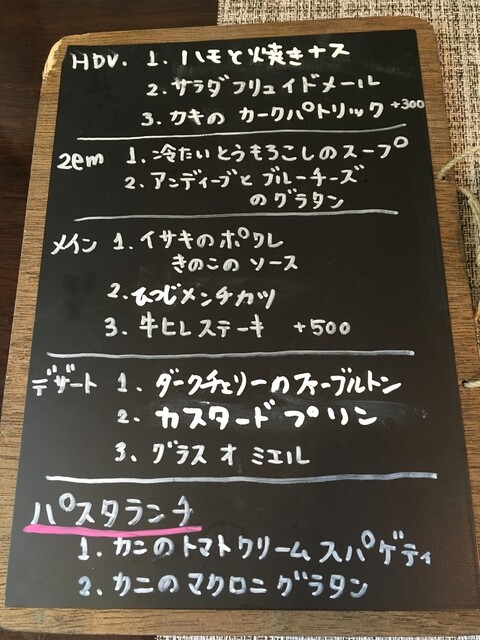 HDV. 1. ハモと焼きナス
2. サラダフリュイドメール
3. カキの カークパトリック +300
2em 1. 冷たいとうもろこしのスープ
2. アンディーブと ブルーチーズ
のグラタン
メイン 1. イサキのポワレ
きのこの ソース
2. ひつじメンチカツ
3. 牛ヒレステーキ +500
デザート 1. ダークチェリーのファーブルトン
2. カスタード プリン
3. グラス オ ミエル
パスタランチ
1. カニのトマトクリーム スパゲティ
2. カニのマクロニグラタン